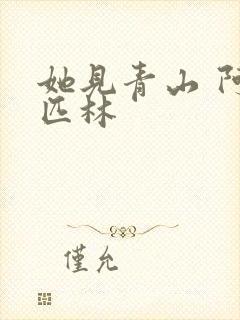 她见青山 阿
匹林
僅允